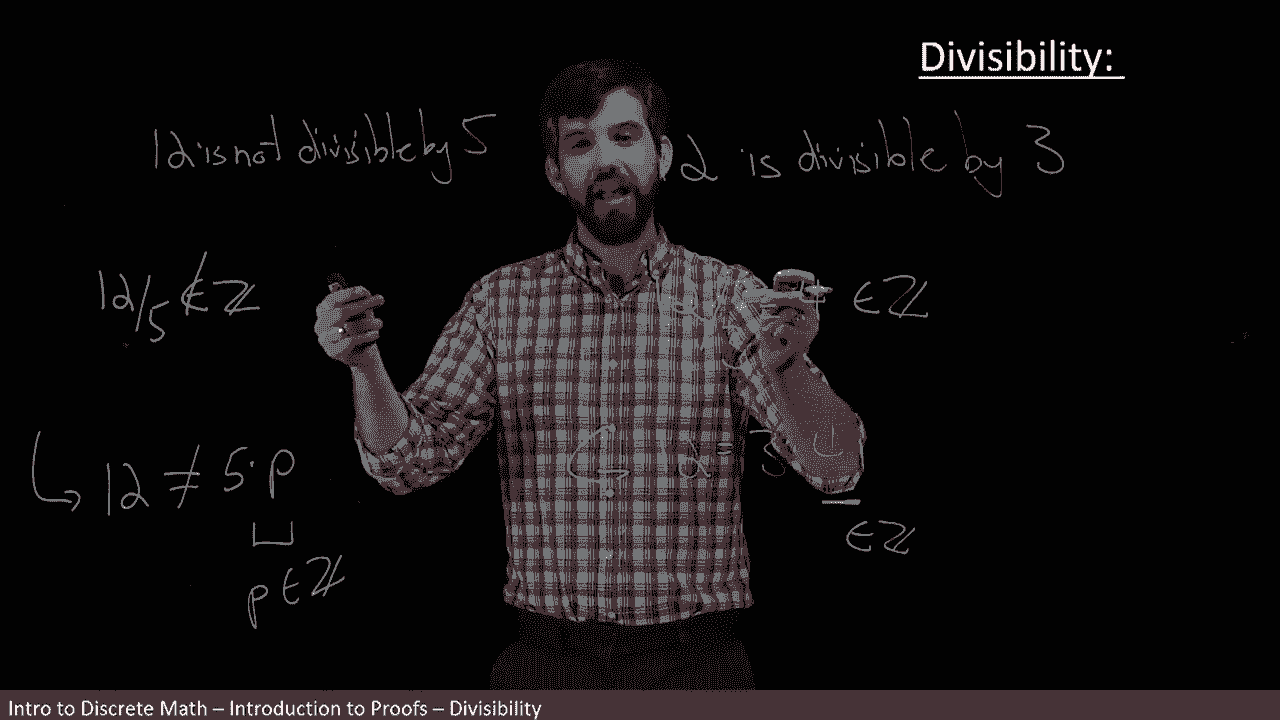 Divisibility:
12 is not divisible by 5
2 is divisible by 3
12/5 ∉ ℤ
∈ ℤ
12 ≠ 5·p
2 = 3
p ∈ ℤ
∈ ℤ
Intro to Discrete Math – Introduction to Proofs – Divisibility